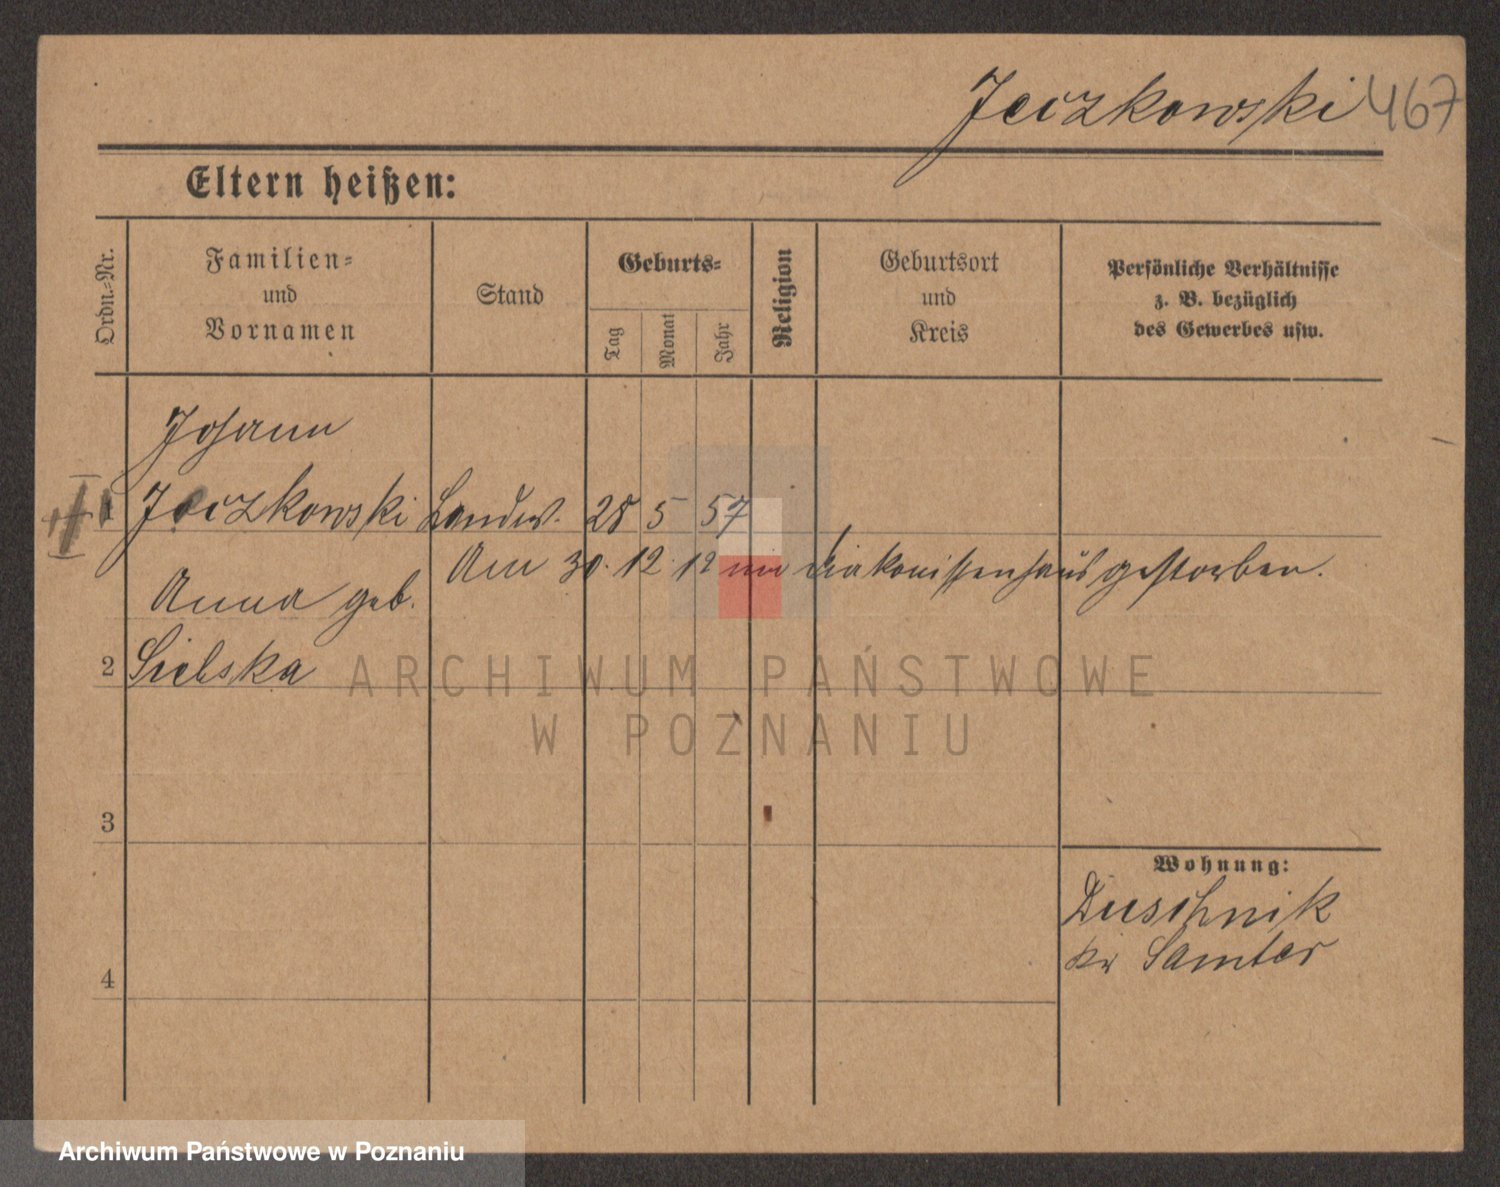 Jeczkowski 467
Eltern heißen:
Ordn.-Nr.
Familien-
und
Vornamen
Stand
Geburts-
Tag
Monat
Jahr
Religion
Geburtsort
und
Kreis
Persönliche Verhältnisse
z. B. bezüglich
des Gewerbes usw.
Johann
1 Jeczkowski Landw. 28 5 57
Am 30. 12. 12 im Diakonissenhaus gestorben.
Anna geb.
2 Sielska
ARCHIWUM PAŃSTWOWE
W POZNANIU
3
Wohnung:
Duschnik
Kr Samter
4
Archiwum Państwowe w Poznaniu